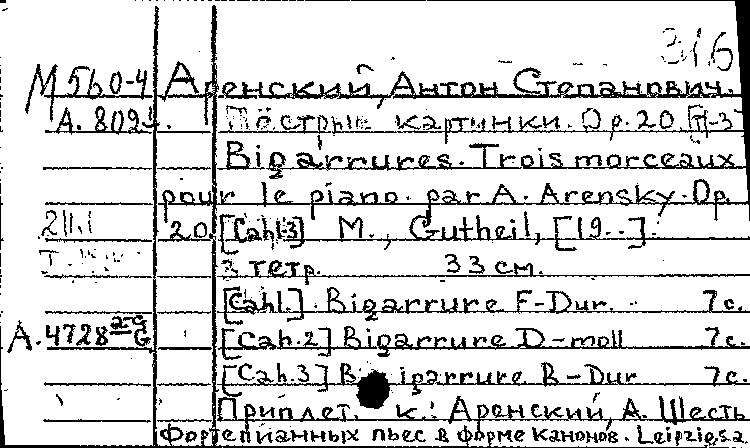 316
М 560-4 Аренский, Антон Степанович.
А. 802 Пёстрые картинки. Op. 20. [1-3
Bigarrures. Trois morceaux
pour le piano. par A. Arensky. Op.
211.1 20 [Cah.3] М., Gutheil, [19..].
3 тетр. 33 см.
[Cah1.] Bigarrure F-Dur. 7 с.
А. 4728 [Cah.2] Bigarrure D-moll 7 с.
[Cah.3] Bigarrure B-Dur 7 с.
Приплет. к.: Аренский, А. Шесть
фортепианных пьес в форме канонов. Leipzig, s.a.